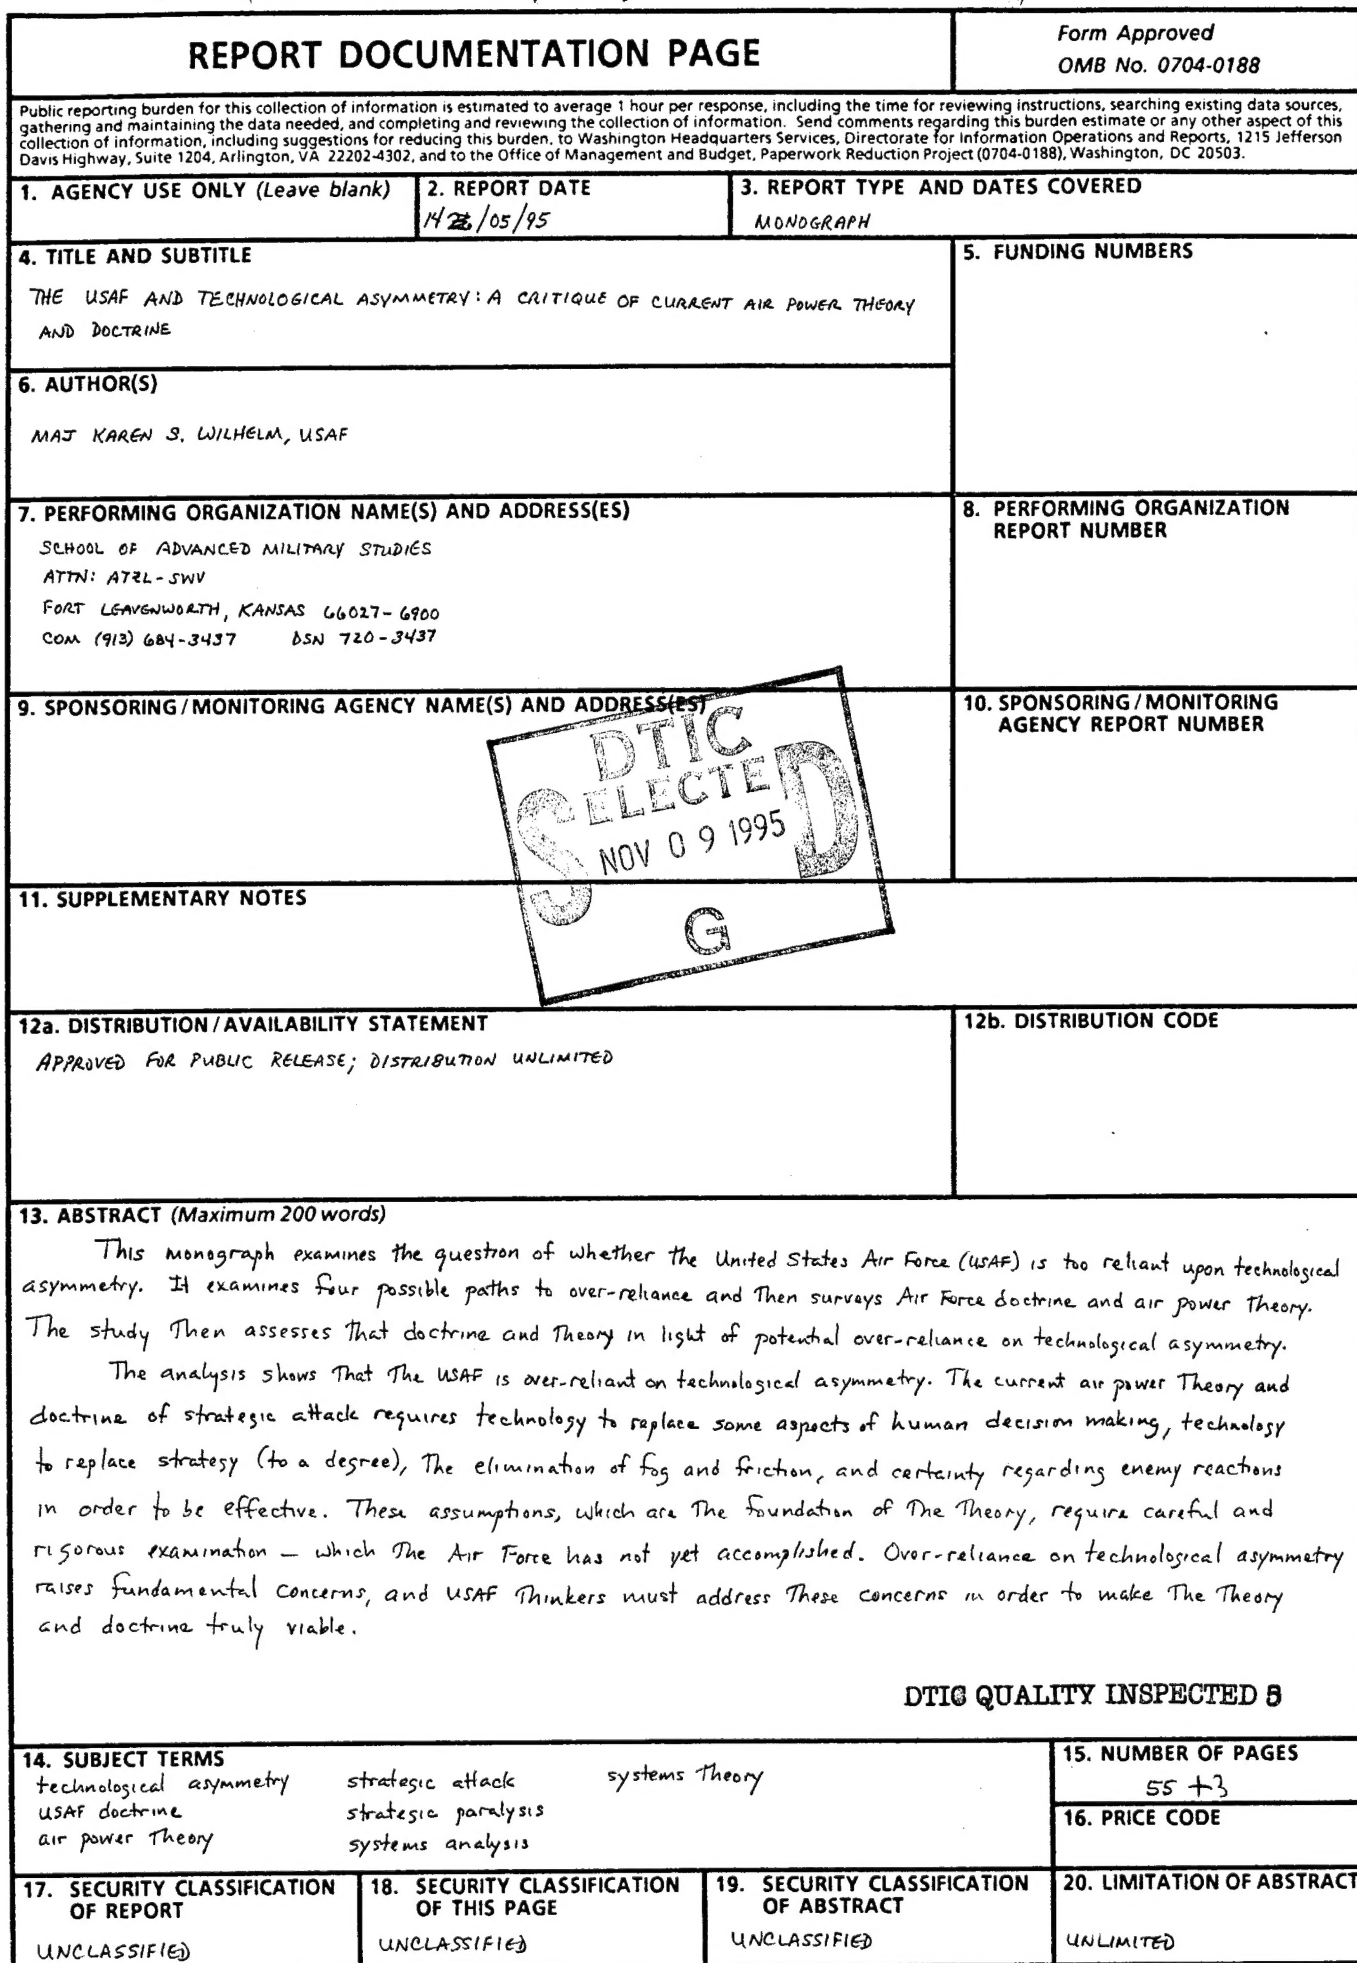 REPORT DOCUMENTATION PAGE
Form Approved
OMB No. 0704-0188
Public reporting burden for this collection of information is estimated to average 1 hour per response, including the time for reviewing instructions, searching existing data sources,
gathering and maintaining the data needed, and completing and reviewing the collection of information. Send comments regarding this burden estimate or any other aspect of this
collection of information, including suggestions for reducing this burden, to Washington Headquarters Services, Directorate for Information Operations and Reports, 1215 Jefferson
Davis Highway, Suite 1204, Arlington, VA 22202-4302, and to the Office of Management and Budget, Paperwork Reduction Project (0704-0188), Washington, DC 20503.
1. AGENCY USE ONLY (Leave blank)
2. REPORT DATE
14/05/95
3. REPORT TYPE AND DATES COVERED
MONOGRAPH
4. TITLE AND SUBTITLE
THE USAF AND TECHNOLOGICAL ASYMMETRY: A CRITIQUE OF CURRENT AIR POWER THEORY
AND DOCTRINE
5. FUNDING NUMBERS
6. AUTHOR(S)
MAJ KAREN S. WILHELM, USAF
7. PERFORMING ORGANIZATION NAME(S) AND ADDRESS(ES)
SCHOOL OF ADVANCED MILITARY STUDIES
ATTN: ATZL-SWV
FORT LEAVENWORTH, KANSAS 66027-6900
COM (913) 684-3437 DSN 720-3437
8. PERFORMING ORGANIZATION
REPORT NUMBER
9. SPONSORING/MONITORING AGENCY NAME(S) AND ADDRESS(ES)
10. SPONSORING/MONITORING
AGENCY REPORT NUMBER
DTIC
SELECTED
NOV 09 1995
G
11. SUPPLEMENTARY NOTES
12a. DISTRIBUTION/AVAILABILITY STATEMENT
APPROVED FOR PUBLIC RELEASE; DISTRIBUTION UNLIMITED
12b. DISTRIBUTION CODE
13. ABSTRACT (Maximum 200 words)
This monograph examines the question of whether the United States Air Force (USAF) is too reliant upon technological
asymmetry. It examines four possible paths to over-reliance and then surveys Air Force doctrine and air power theory.
The study then assesses that doctrine and theory in light of potential over-reliance on technological asymmetry.
The analysis shows that the USAF is over-reliant on technological asymmetry. The current air power theory and
doctrine of strategic attack requires technology to replace some aspects of human decision making, technology
to replace strategy (to a degree), the elimination of fog and friction, and certainty regarding enemy reactions
in order to be effective. These assumptions, which are the foundation of the theory, require careful and
rigorous examination — which the Air Force has not yet accomplished. Over-reliance on technological asymmetry
raises fundamental concerns, and USAF thinkers must address these concerns in order to make the theory
and doctrine truly viable.
DTIC QUALITY INSPECTED 5
14. SUBJECT TERMS
technological asymmetry strategic attack systems theory
USAF doctrine strategic paralysis
air power theory systems analysis
15. NUMBER OF PAGES
55 +3
16. PRICE CODE
17. SECURITY CLASSIFICATION
OF REPORT
UNCLASSIFIED
18. SECURITY CLASSIFICATION
OF THIS PAGE
UNCLASSIFIED
19. SECURITY CLASSIFICATION
OF ABSTRACT
UNCLASSIFIED
20. LIMITATION OF ABSTRACT
UNLIMITED